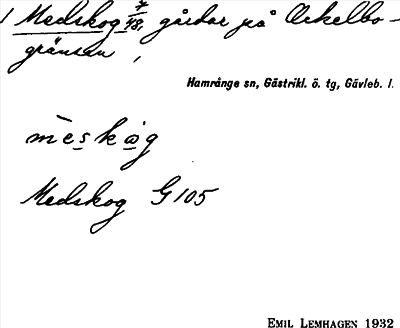 1 Medskog 7/48, gårdar på Ockelbo-
gränsen,
Hamrånge sn, Gästrikl. ö. tg, Gävleb. l.
Medskog G 105
EMIL LEMHAGEN 1932